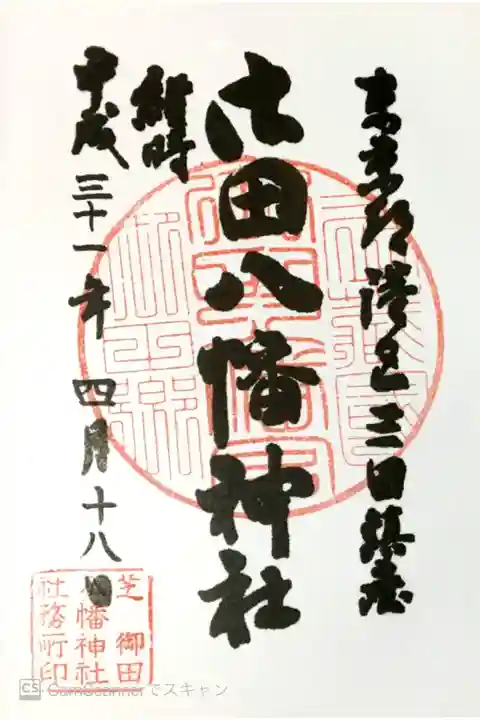 東京都港区三田鎮座
御田八幡神社
維時
平成三十一年 四月十八日
芝 御田
八幡神社
社務所印
CS CamScannerでスキャン